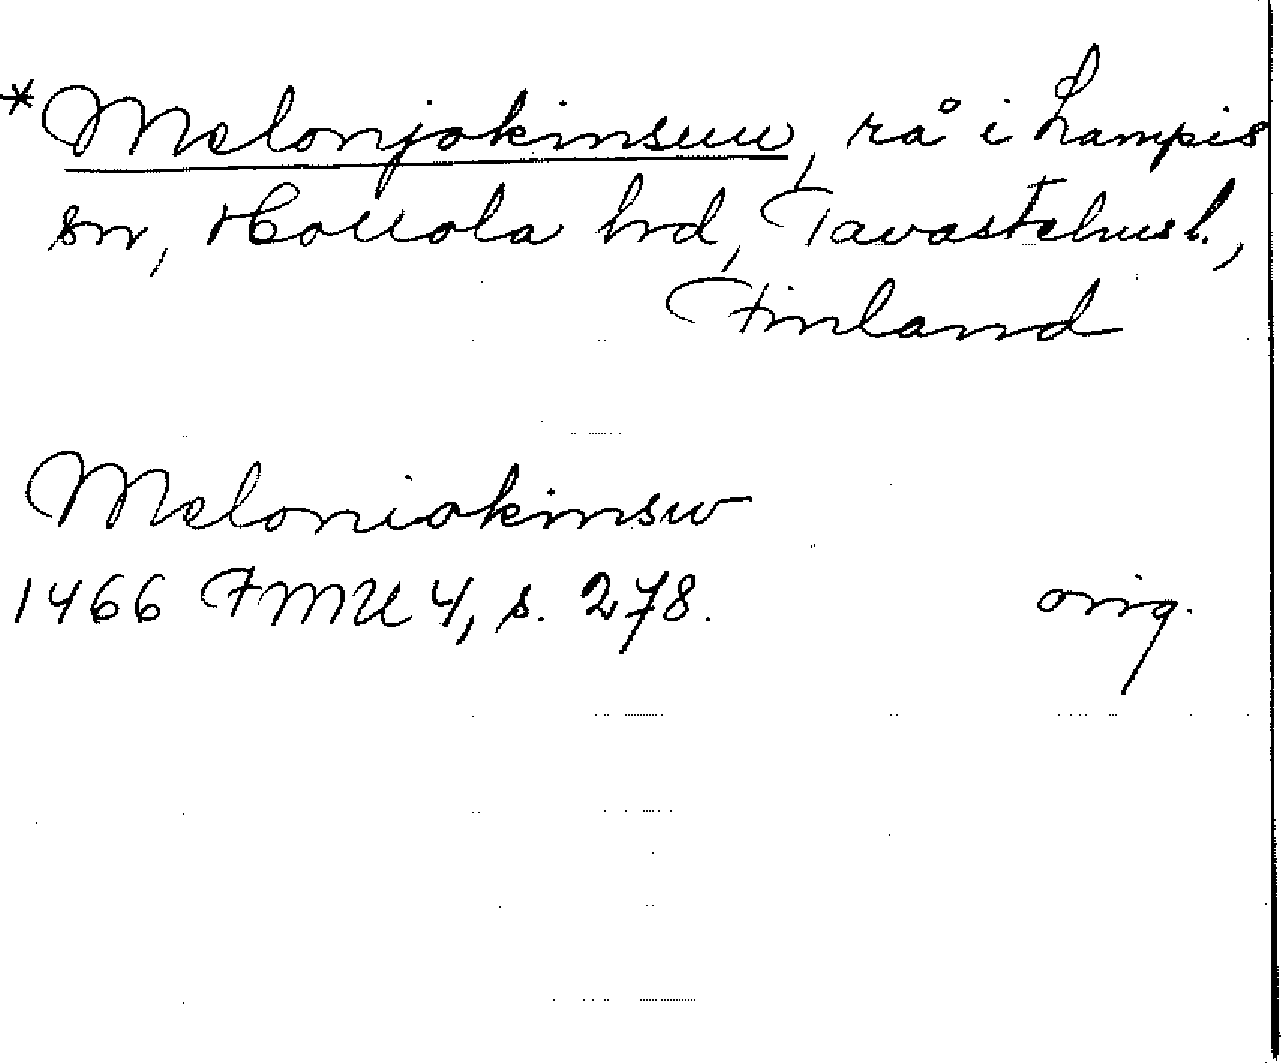 *Melonjokinsuu, rå i Lampis
sn, Hollola hd, Tavastehus l.,
Finland
Meloniokinsw
1466 FMU 4, s. 278. orig.